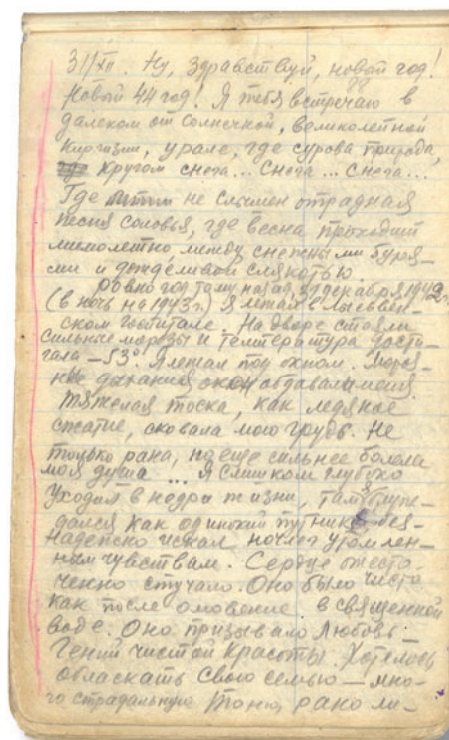 31/XII. Ну, здравствуй, новый год!
Новый 44 год! Я тебя встречаю в
далеком от солнечной, великолепной
Киргизии, урале, где сурова природа,
кругом снега... снега... снега...
Где не слышен отрадная
песня соловья, где весна проходит
мимолетно, между снежными буря-
ми и дождливой слякотью
Ровно год тому назад, 31 декабря 1942 г.
(в ночь на 1943 г.) Я лежал в Лысьвен-
ском госпитале. На дворе стояли
сильные морозы и температура дости-
гала - 53°. Я лежал под окном.
дыхания окон обдавали меня.
Тяжелая тоска, как ледяное
сжатие, сковала мою грудь. Не
только рана, но еще сильнее болела
моя душа ... Я слишком глубоко
уходил в недра жизни, там блуж-
дался как одинокий путник, без-
надежно искал ночлег утомлен-
ным чувствам. Сердце ожесто-
ченно стучало. Оно было чисто
как после омовение в священной
воде. Оно призывало Любовь -
Гений чистой Красоты. Хотелось
обласкать свою семью - мно-
го страдальную Тоню, рано ли-